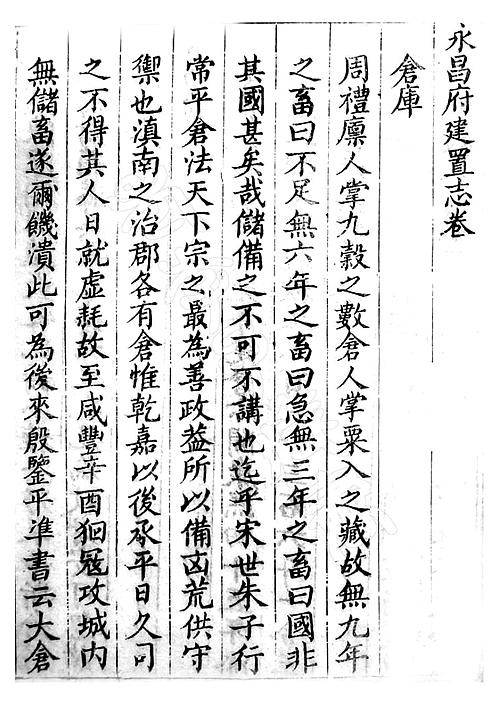 永昌府建置志卷
倉庫
周禮廩人掌九穀之數倉人掌粟入之藏故無九年
之畜曰不足無六年之畜曰急無三年之畜曰國非
其國甚矣哉儲備之不可不講也迄乎宋世朱子行
常平倉法天下宗之最為善政葢所以備凶荒供守
禦也滇南之治郡各有倉惟乾嘉以後承平日久司
之不得其人日就虛耗故至咸豐辛酉狥冦攻城内
無儲畜遂爾饑潰此可為後來殷鑒平準書云大倉